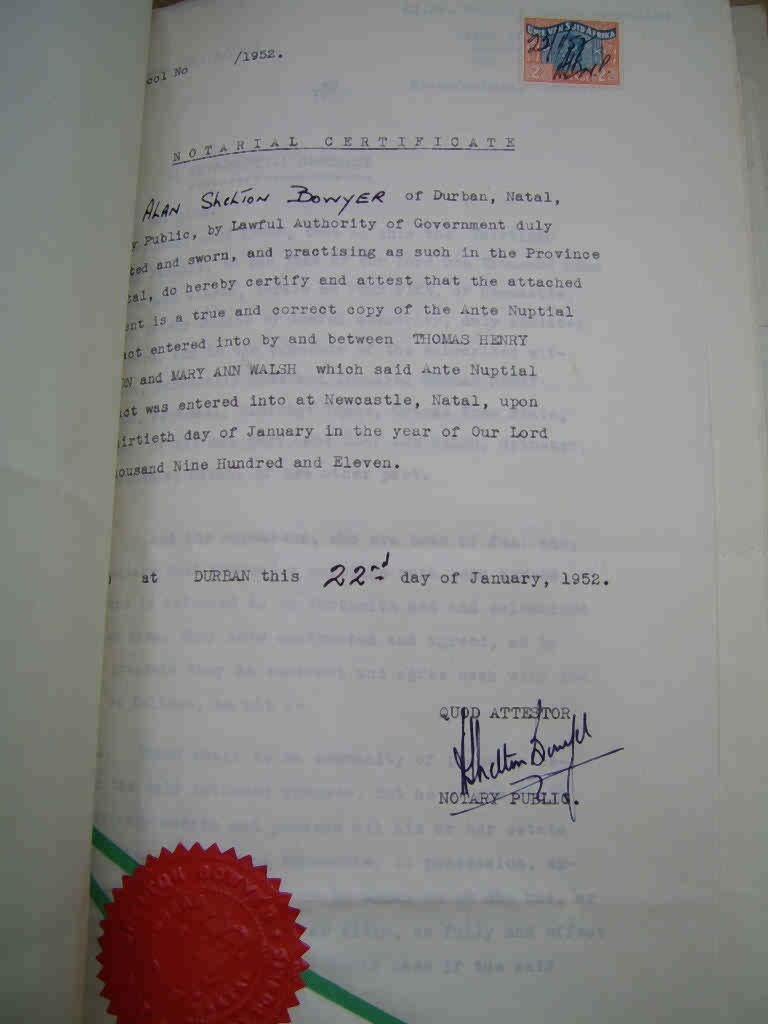 col No /1952.
UNIE VAN SUIDAFRIKA
NOTARIAL CERTIFICATE
ALAN SHELTON BOWYER of Durban, Natal,
y Public, by Lawful Authority of Government duly
ted and sworn, and practising as such in the Province
tal, do hereby certify and attest that the attached
ent is a true and correct copy of the Ante Nuptial
act entered into by and between THOMAS HENRY
ON and MARY ANN WALSH which said Ante Nuptial
act was entered into at Newcastle, Natal, upon
irtieth day of January in the year of Our Lord
housand Nine Hundred and Eleven.
at DURBAN this 22nd day of January, 1952.
QUOD ATTESTOR
AShelton Bowyer
NOTARY PUBLIC.